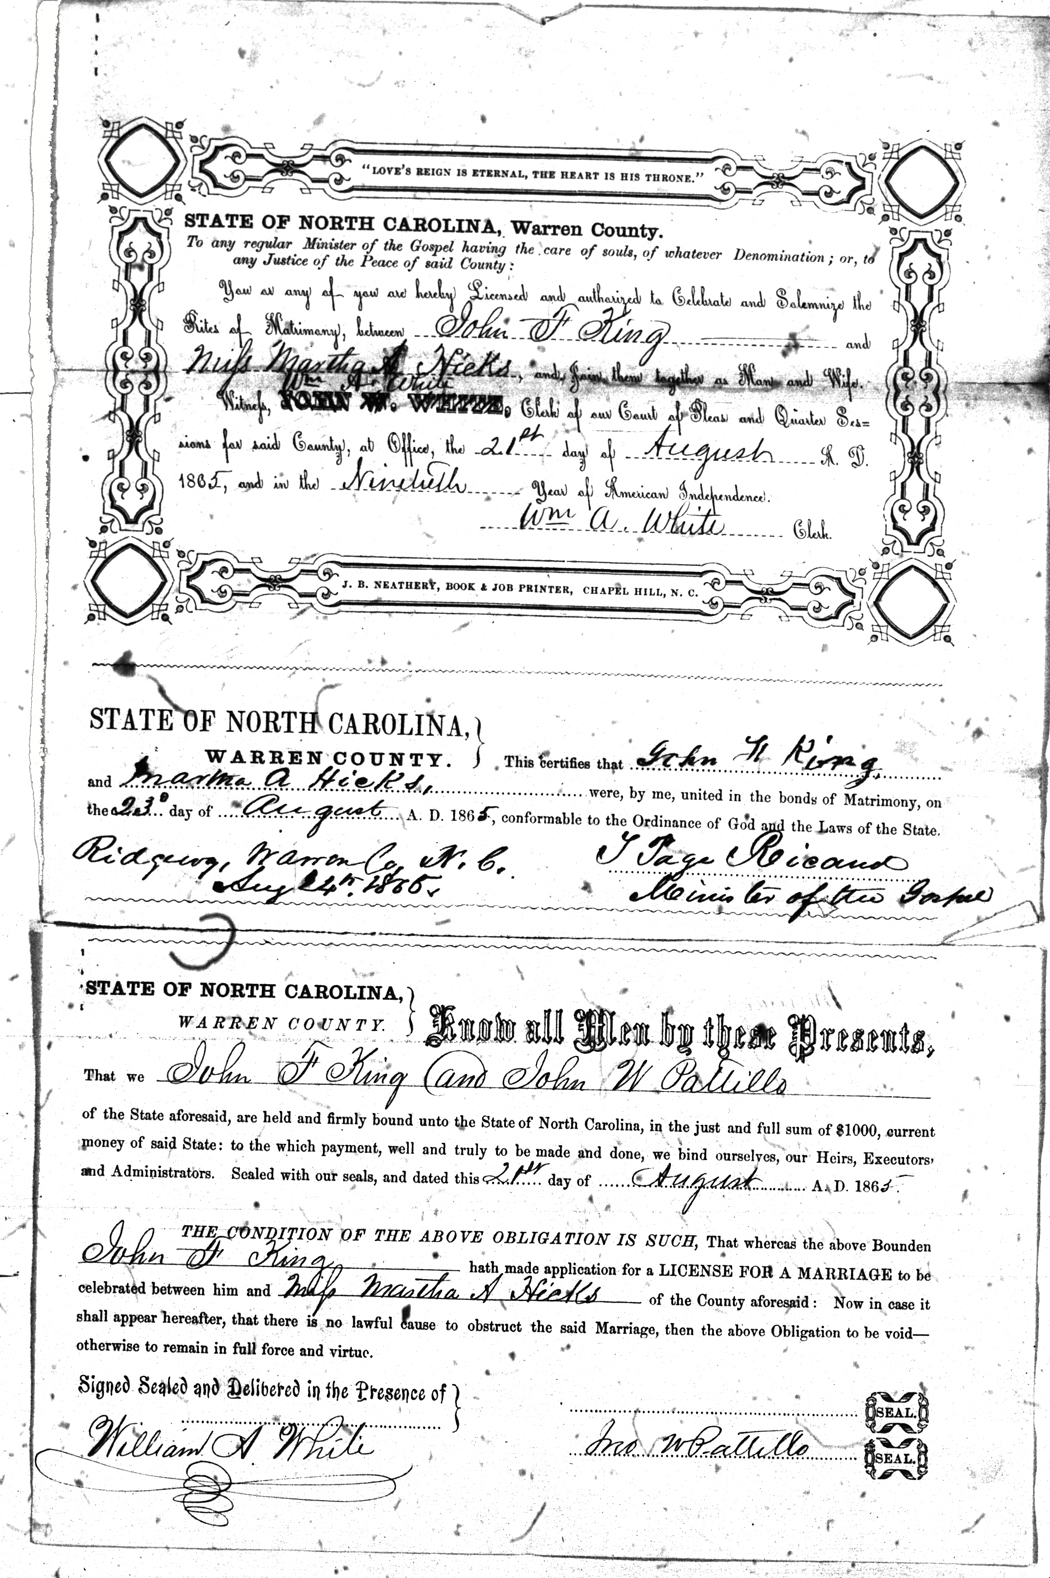 "LOVE'S REIGN IS ETERNAL, THE HEART IS HIS THRONE."
STATE OF NORTH CAROLINA, Warren County.
To any regular Minister of the Gospel having the care of souls, of whatever Denomination; or, to
any Justice of the Peace of said County:
You or any of you are hereby Licensed and authorized to Celebrate and Solemnize the
Rites of Matrimony, between John F King and
Miss Martha A Hicks, and Join them together as Man and Wife.
Wm A. White
Witness, JOHN W. WHITE, Clerk of our Court of Pleas and Quarter Ses=
sions for said County, at Office, the 21st day of August A. D.
1865, and in the Ninetieth Year of American Independence.
Wm A. White Clerk.
J. B. NEATHERY, BOOK & JOB PRINTER, CHAPEL HILL, N. C.
STATE OF NORTH CAROLINA,
WARREN COUNTY. This certifies that John F King,
and Martha A Hicks, were, by me, united in the bonds of Matrimony, on
the 23d day of August A. D. 1865, conformable to the Ordinance of God and the Laws of the State.
Ridgeway, Warren Co, N. C. T Page Ricaud
Aug 24th. 1865. Minister of the Gospel
STATE OF NORTH CAROLINA,
WARREN COUNTY. Know all Men by these Presents,
That we John F King and John W Pattillo
of the State aforesaid, are held and firmly bound unto the State of North Carolina, in the just and full sum of $1000, current
money of said State: to the which payment, well and truly to be made and done, we bind ourselves, our Heirs, Executors,
and Administrators. Sealed with our seals, and dated this 21st day of August A. D. 1865.
THE CONDITION OF THE ABOVE OBLIGATION IS SUCH, That whereas the above Bounden
John F King hath made application for a LICENSE FOR A MARRIAGE to be
celebrated between him and Miss Martha A Hicks of the County aforesaid: Now in case it
shall appear hereafter, that there is no lawful cause to obstruct the said Marriage, then the above Obligation to be void—
otherwise to remain in full force and virtue.
Signed Sealed and Delibered in the Presence of
SEAL.
William A. White Jno W Pattillo SEAL.